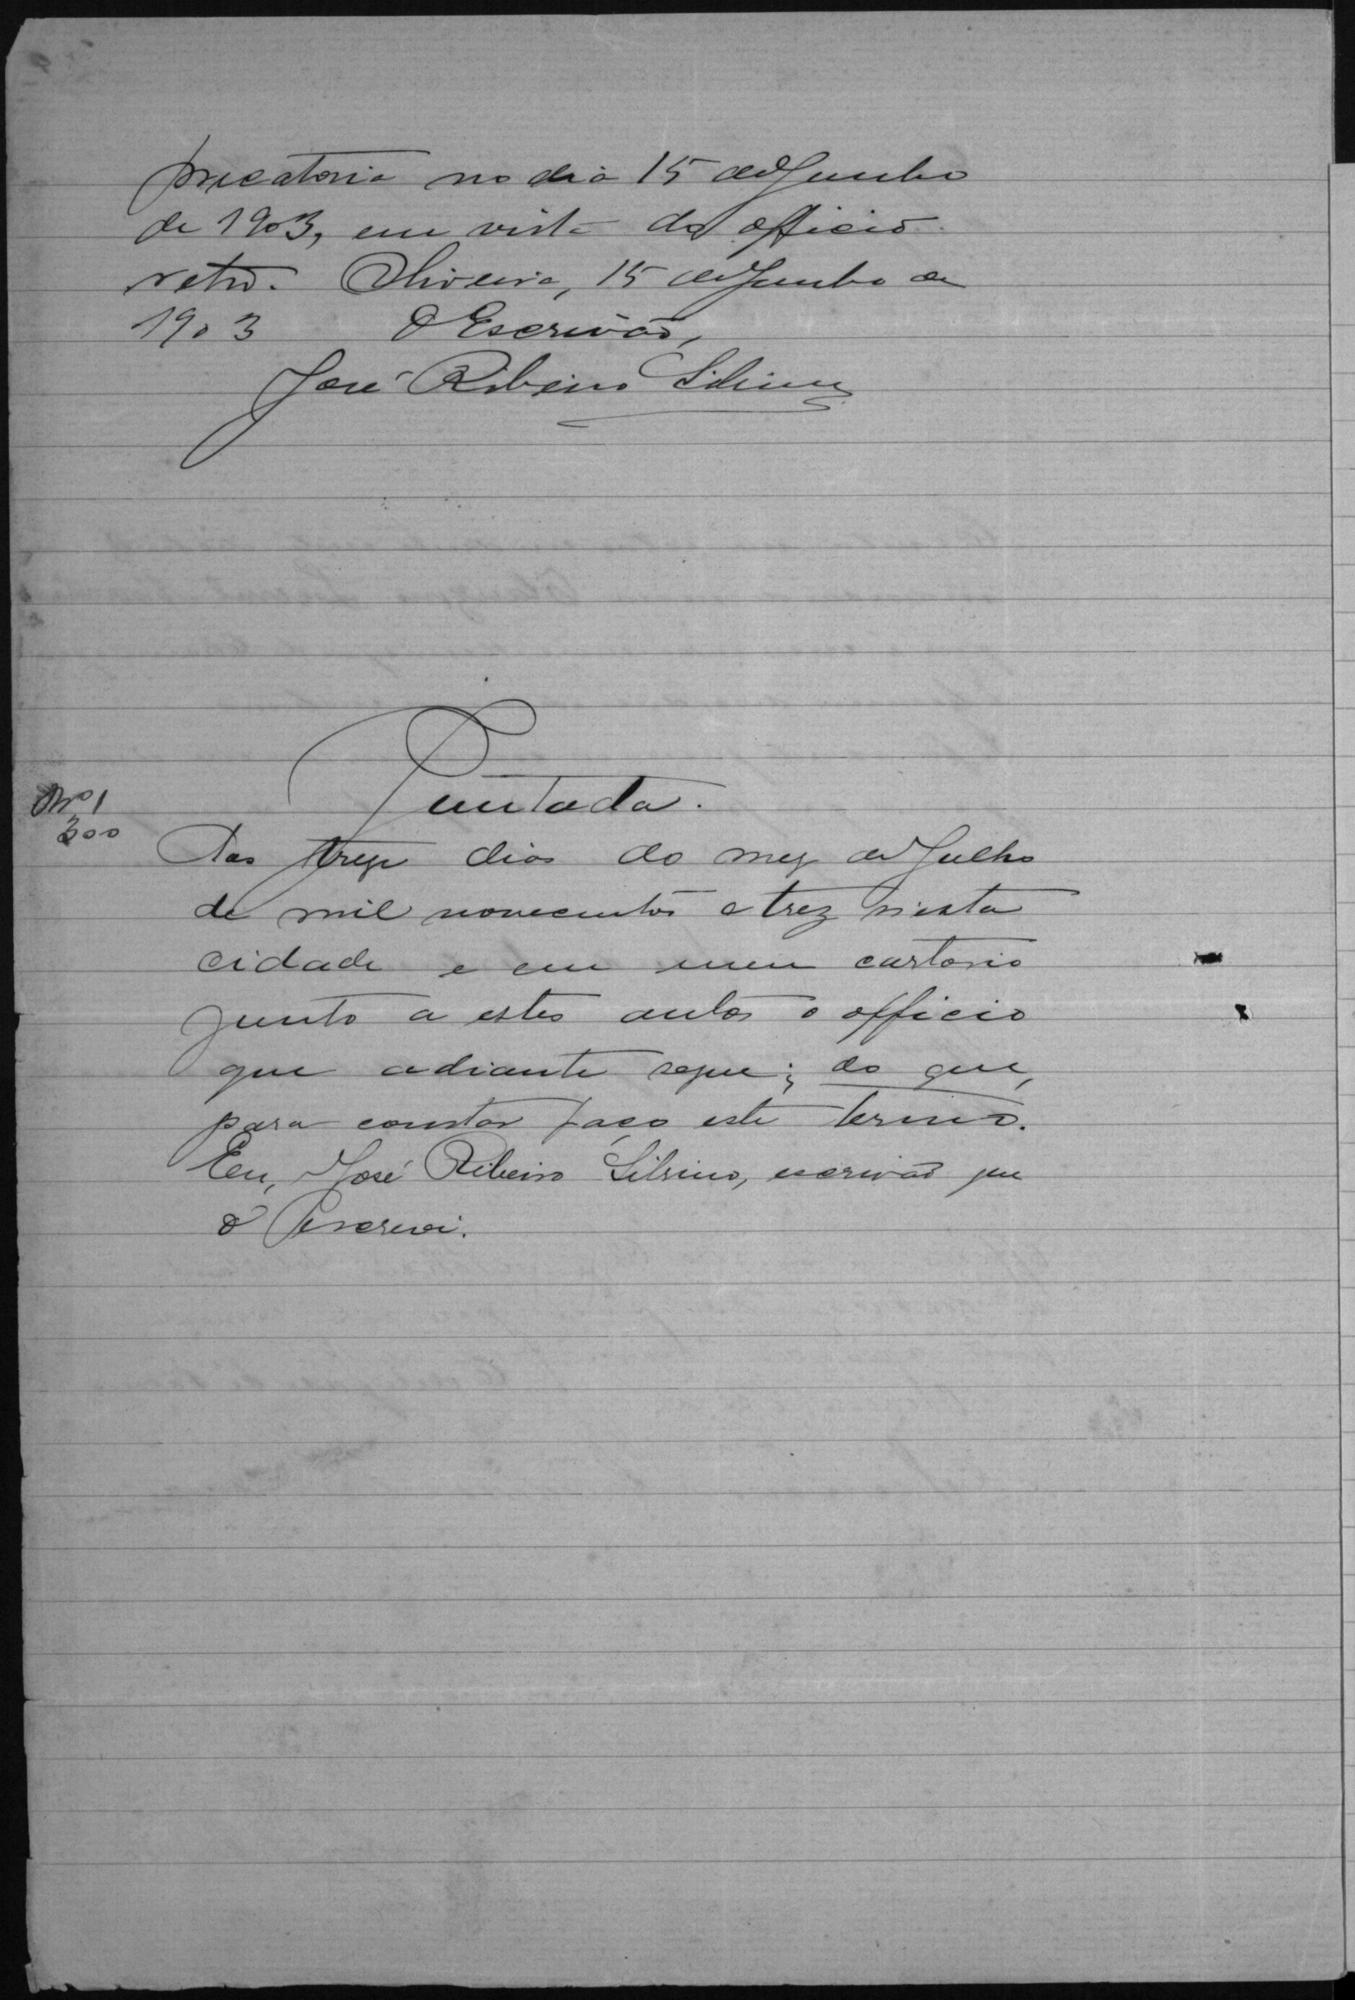 precatoria no dia 15 de Junho
de 1903, em vista do officio
retro. Oliveira, 15 de Junho de
1903 O Escrivão,
José Ribeiro Silvino
Juntada.
Nº 1
300
Aos treze dias do mez de Julho
de mil novecentos e trez nesta
cidade e em meu cartorio
junto a estes autos o officio
que adiante segue; do que,
para constar faço este termo.
Eu, José Ribeiro Silvino, escrivão que
o escrevi.